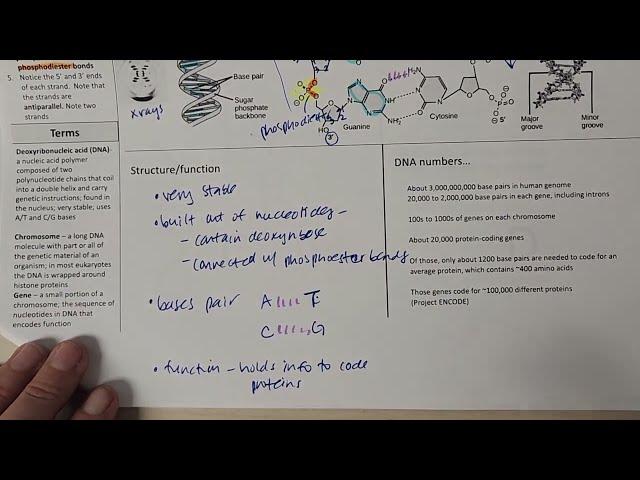 phosphodiester bonds
5. Notice the 5' and 3' ends
of each strand. Note that
the strands are
antiparallel. Note two
strands
Terms
Deoxyribonucleic acid (DNA)-
a nucleic acid polymer
composed of two
polynucleotide chains that coil
into a double helix and carry
genetic instructions; found in
the nucleus; very stable; uses
A/T and C/G bases
Chromosome – a long DNA
molecule with part or all of
the genetic material of an
organism; in most eukaryotes
the DNA is wrapped around
histone proteins
Gene – a small portion of a
chromosome; the sequence of
nucleotides in DNA that
encodes function
xrays
Base pair
Sugar
phosphate
backbone
HO
3'
Guanine
NH
NH₂
H₂N
Cytosine
5'
Major
groove
Minor
groove
Structure/function
• very stable
• built out of nucleotides –
– contain deoxyribose
– connected w/ phosphoester bonds
• bases pair A T
C G
• function – holds info to code
proteins
DNA numbers...
About 3,000,000,000 base pairs in human genome
20,000 to 2,000,000 base pairs in each gene, including introns
100s to 1000s of genes on each chromosome
About 20,000 protein-coding genes
Of those, only about 1200 base pairs are needed to code for an
average protein, which contains ~400 amino acids
Those genes code for ~100,000 different proteins
(Project ENCODE)